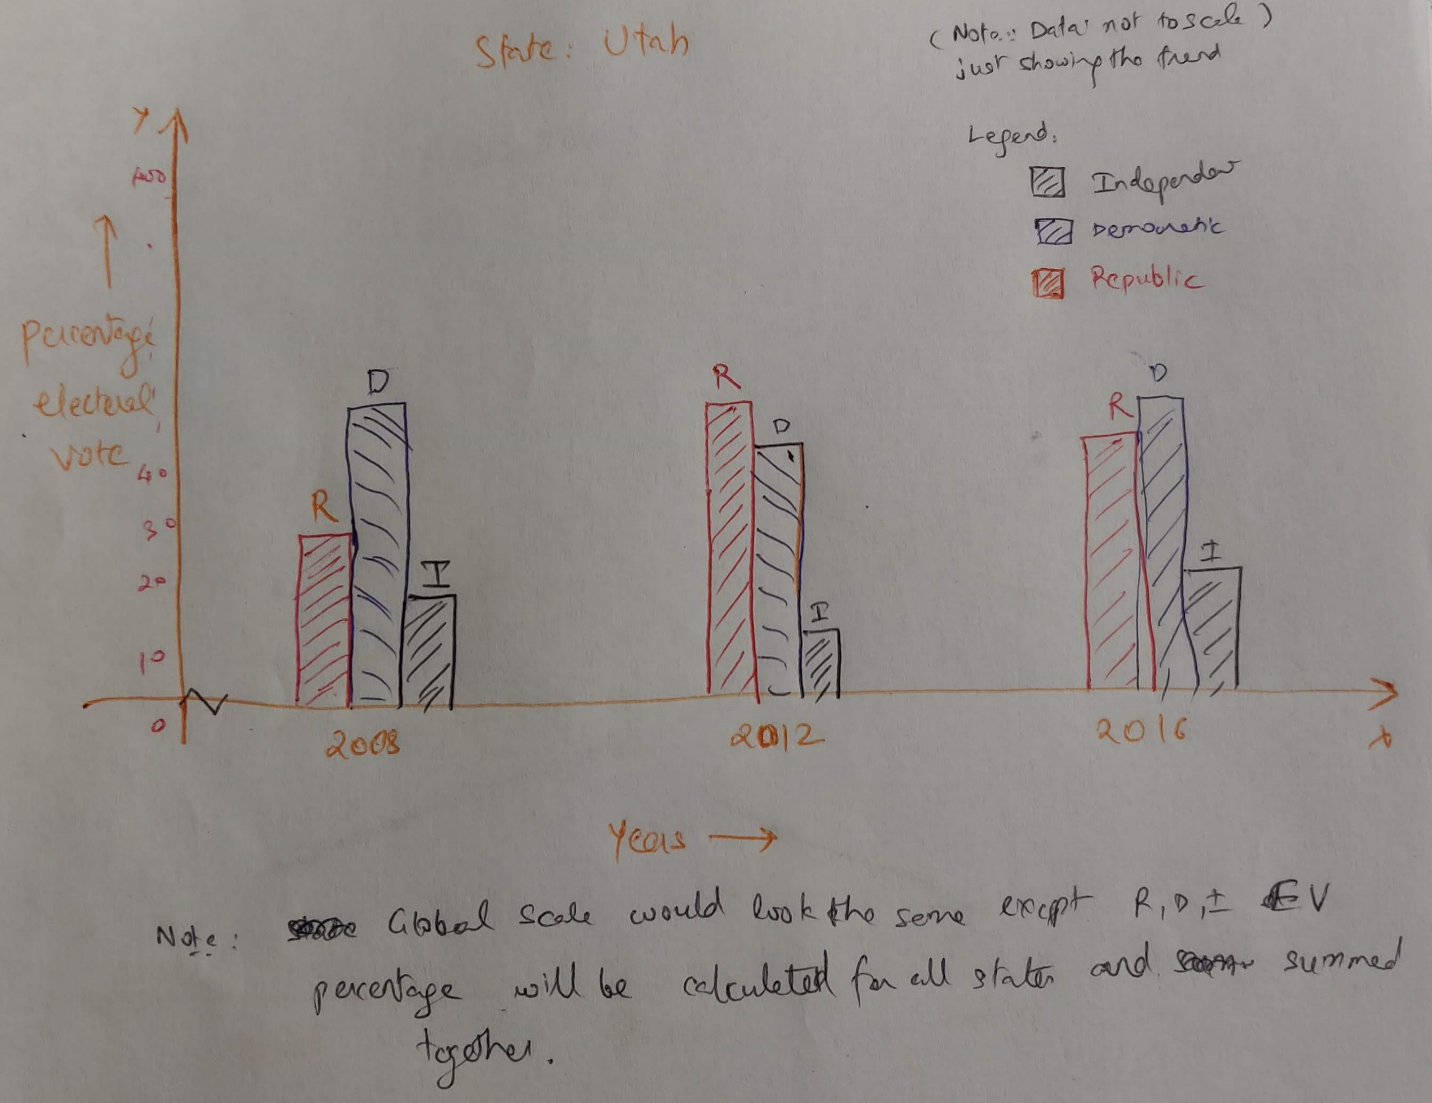 State: Utah
(Note: Data not to scale)
just showing the trend
Legend:
Independent
Democratic
Republic
Y
100
percentage
electoral
vote
40
30
20
10
0
R
D
I
R
D
I
R
D
I
2008
2012
2016
x
Years →
Note: Global scale would look the same except R, D, I EV
percentage will be calculated for all states and summed
together.